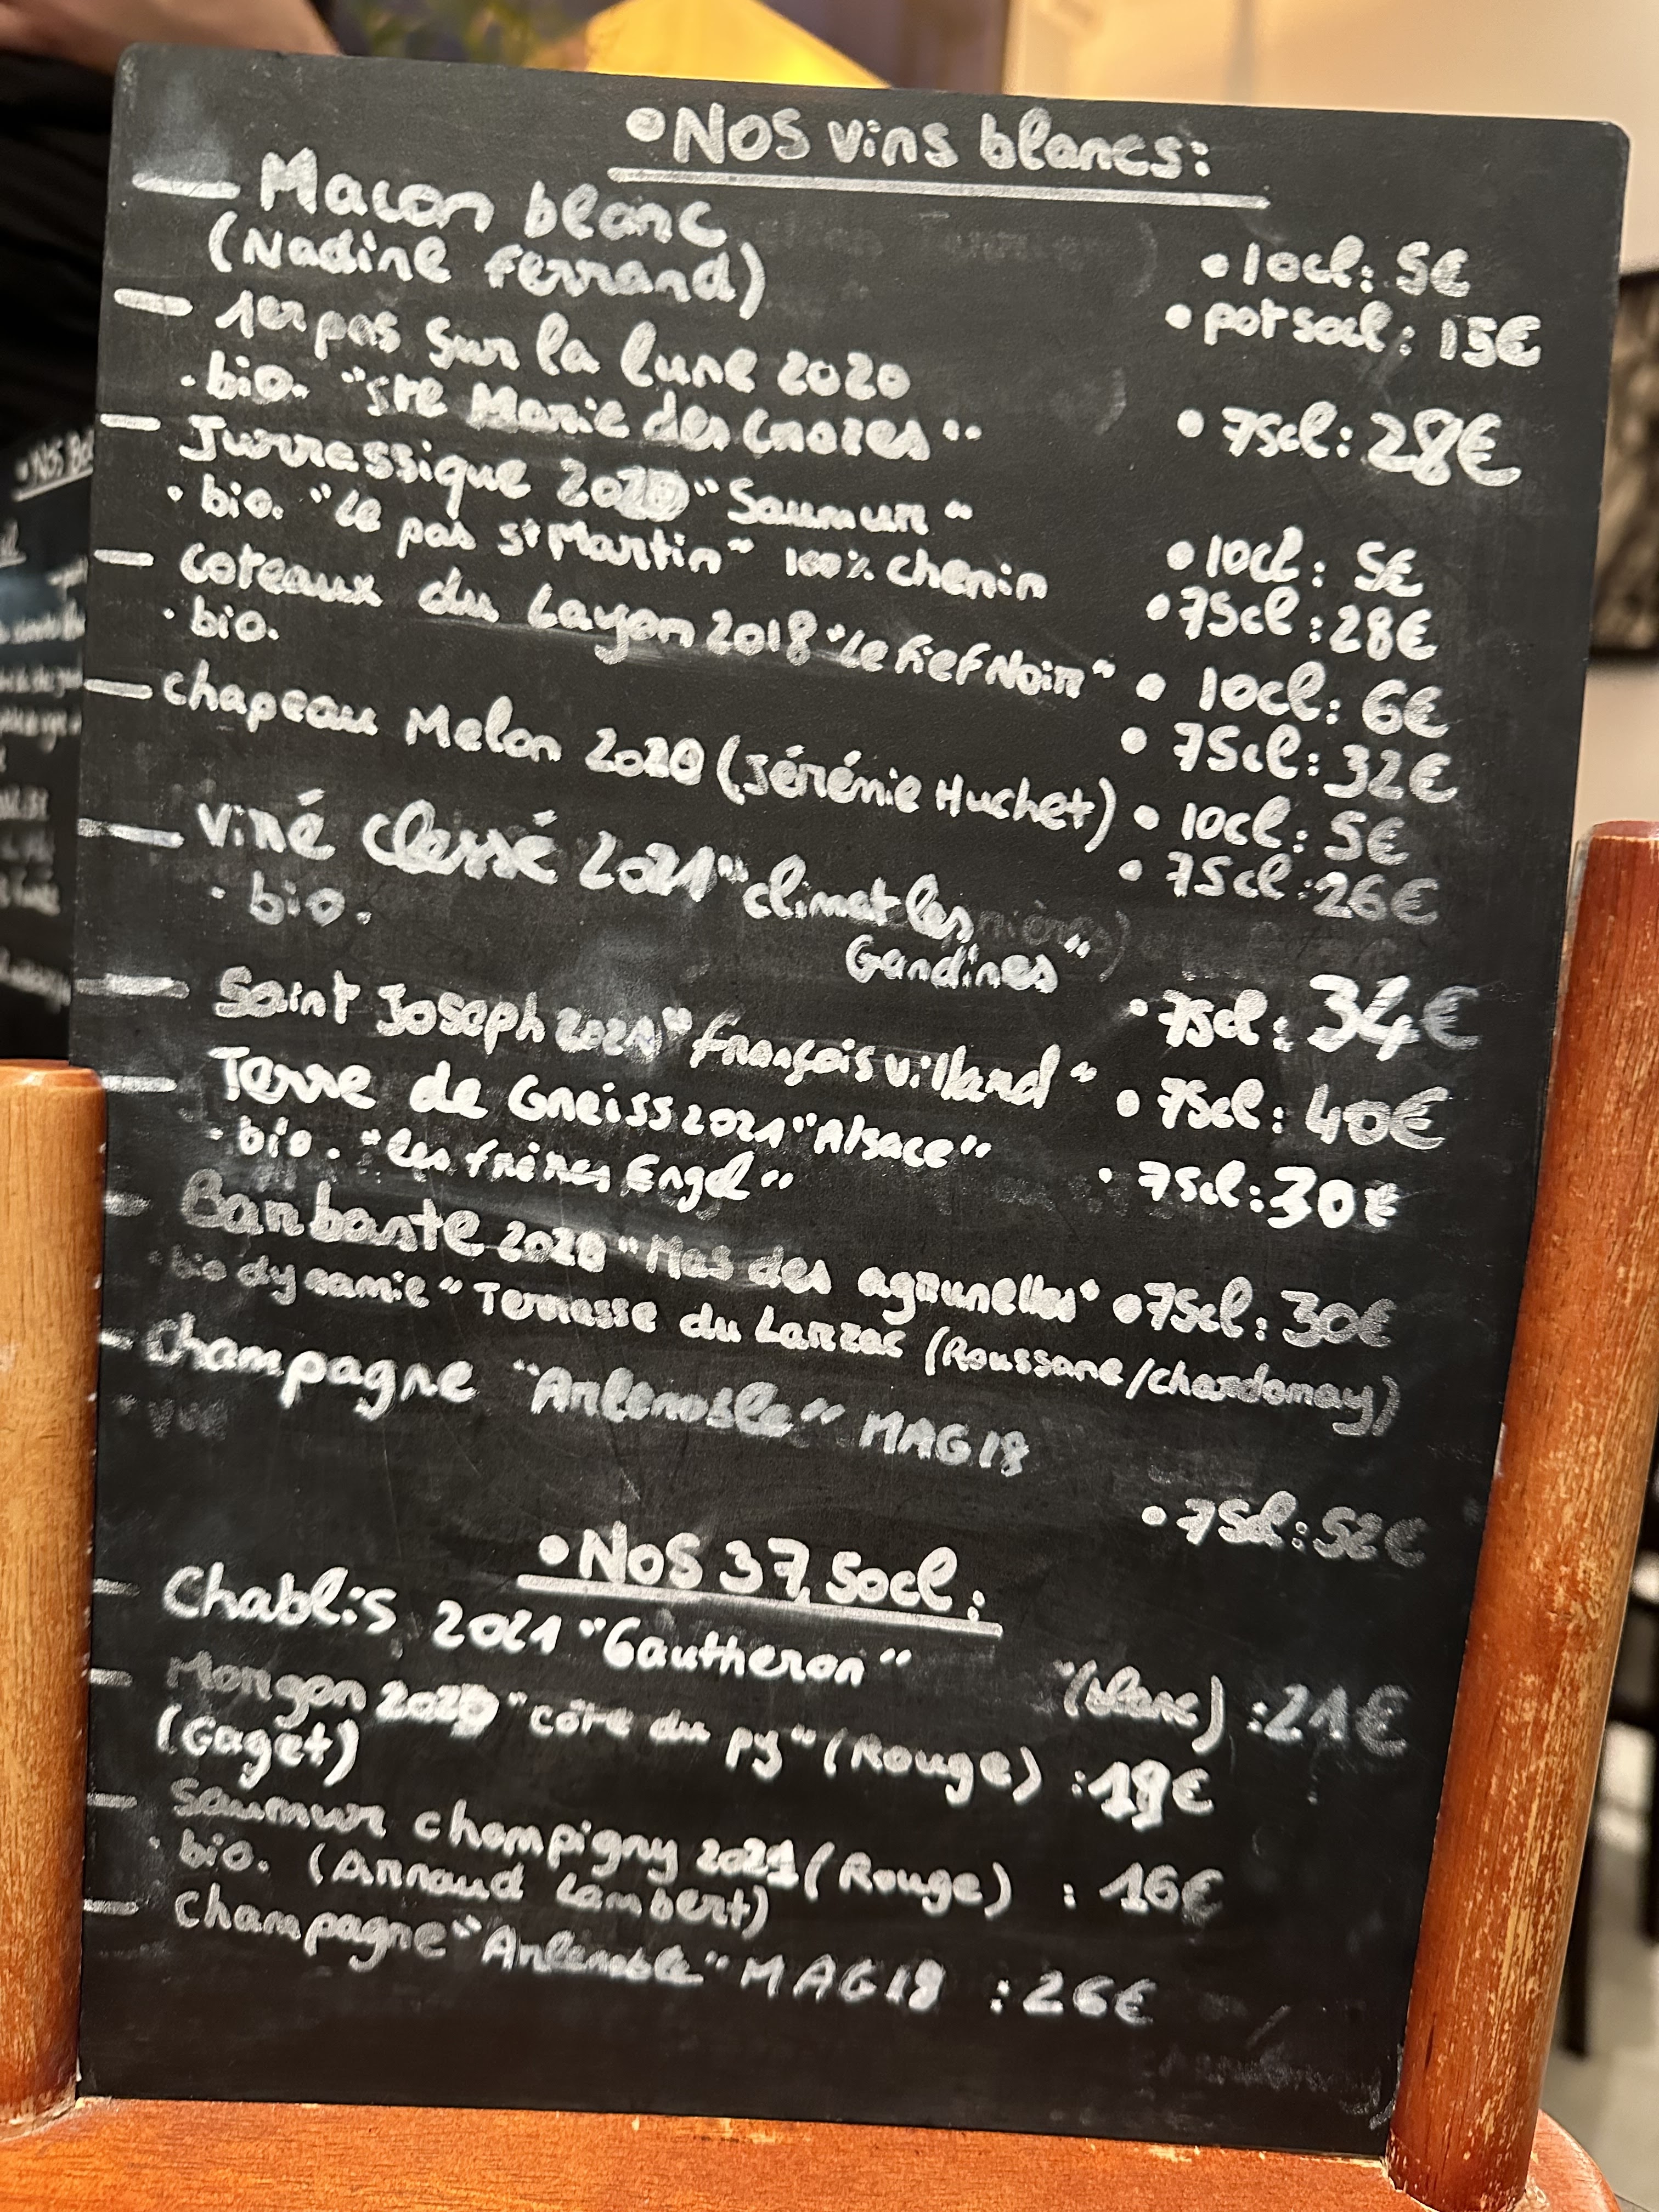 • Nos vins blancs:
— Macon blanc
(Nadine Ferrand) • 10cl: 5€
• pot 50cl: 15€
— 1er pas sur la lune 2020
• bio. "Ste Marie des Crozes" • 75cl: 28€
— Jurrassique 2020 "Saumur"
• bio. "Le pas st Martin" 100% chenin • 10cl: 5€
• 75cl: 28€
— coteaux du Layon 2018 "Le Fief Noir" • 10cl: 6€
• bio. • 75cl: 32€
— chapeau Melon 2020 (Jérémie Huchet) • 10cl: 5€
• 75cl: 26€
— Viré clessé 2021 "climat les
• bio. Gandines" • 75cl: 34€
— Saint Joseph 2021 "François Villard" • 75cl: 40€
— Terre de Gneiss 2021 "Alsace"
• bio. "les frères Engel" • 75cl: 30€
— Barbaste 2020 "Mas des agrunelles" • 75cl: 30€
• biodynamie "Terrasse du Larzac (Roussane/chardonnay)
— Champagne "Arlenoble" MAG 18
• 75cl: 52€
• Nos 37,50cl:
— Chablis 2021 "Gautheron" "(blanc) : 21€
— Morgon 2020 "côte du py" (Rouge) : 19€
(Gaget)
— Saumur champigny 2021 (Rouge) : 16€
• bio. (Arnaud Lambert)
— Champagne "Arlenoble" MAG 18 : 26€